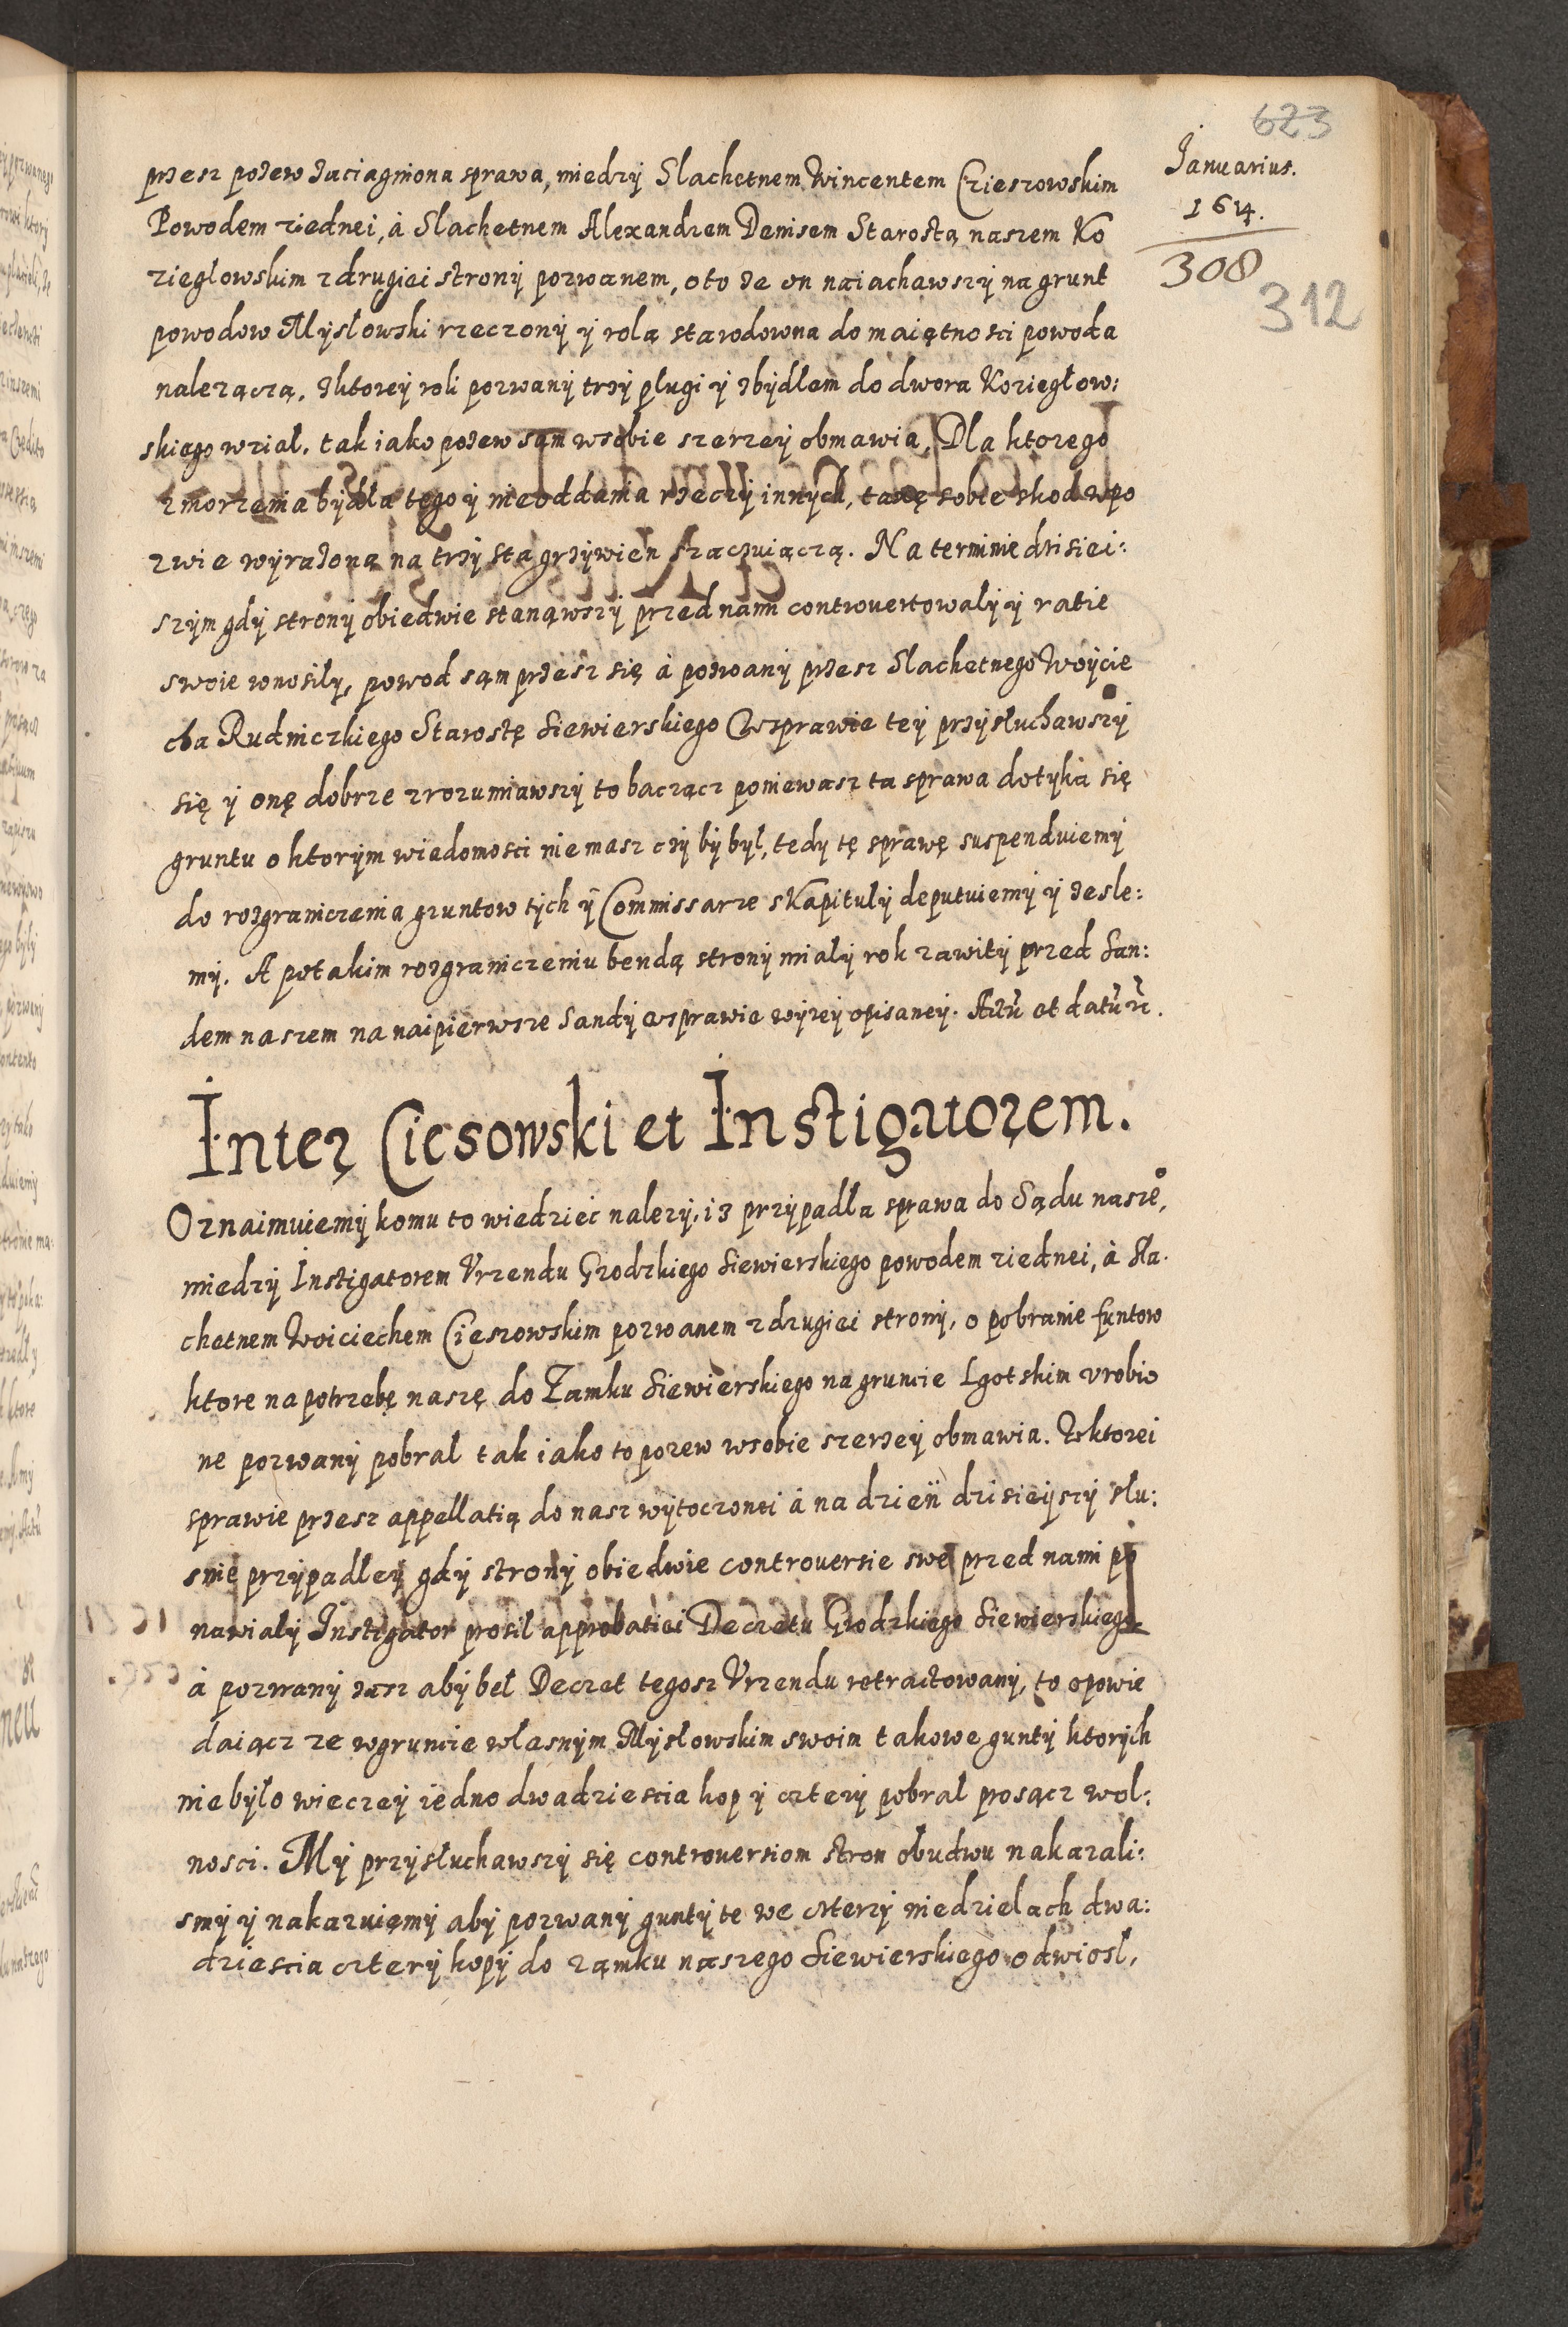 623
Januarius.
1614.
308
312
przesz pozew zaciagniona sprawa, miedzy Slachetnem Wincentem Czieszowskim
Powodem ziednei, à Slachetnem Alexandrem Denisem Starostą naszem Ko
zieglowskim z drugiei strony pozwanem, oto ze on naiachawszy na grunt
powodow Mysłowski rzeczony y rolą starodowna do maiętnosci powoda
nalezączą, z ktorey roli pozwany trzy plugi y z bydlem do dwora Koziegłow:
skiego wzial, tak iako pozew sąm w sobie szerzey obmawia, Dla ktorego
zmorzenia bydła tego y nieoddania rzeczy innych, taxę sobie skod w po
zwie wyrazoną na trzy sta grzywien szaczuiączą. Na terminie dzisiei:
szym gdy strony obiedwie stanąwszy przed nami controvertowaly y ratie
swoie wnosily, powod sąm przesz się à pozwany przesz Slachetnego Woycie
cha Rudniczkiego Starostę Siewierskiego W sprawie tey przysłuchawszy
się y onę dobrze zrozumiawszy to bacząc poniewasz ta sprawa dotyka się
gruntu o ktorym wiadomosci nie masz czy by był, tedy tę sprawę suspenduiemy
do rozgraniczenia gruntow tych y Commissarze s Kapituly deputuiemy y zesle:
my. A po takim rozgraniczeniu bendą strony mialy rok zawity przed San:
dem naszem na naipierwsze Sandy w sprawie wyzey opisaney. Actū et datū rc.
Inter Ciesowski et Instigatorem.
Oznaimuiemy komu to wiedziec nalezy, iz przypadla sprawa do Sądu nasze͛,
miedzy Instigatorem Vrzendu Grodzkiego Siewierskiego powodem ziednei, à Sla.
chetnem Woiciechem Cieszowskim pozwanem z drugiei strony, o pobranie funtow
ktore na potrzebę naszę do Zamku Siewierskiego na gruncie Lgotskim vrobio
ne pozwany pobral tak iako to pozew w sobie szerzey obmawia. W ktorei
sprawie przesz appellatią do nasz wytoczonei à na dzień dzisieyszy slu:
snie przypadley gdy strony obiedwie controversie swe przed nami po
nawialy Instigator prosil approbatiei Decretu Grodzkiego Siewierskiego
à pozwany zasz aby bel Decret tegosz Vrzendu retractowany, to opowie
daiącz ze w gruncie własnym Mysłowskim swoim takowe gunty ktorych
nie bylo wieczey iedno dwadziescia kop y cztery pobral prosącz wol:
nosci. My przysłuchawszy się controversiom stron obudwu nakazali:
smy y nakazuięmy aby pozwany gunty te we czterzy niedzielach dwa:
dziescia cztery kopy do ząmku naszego Siewierskiego odwiosl,